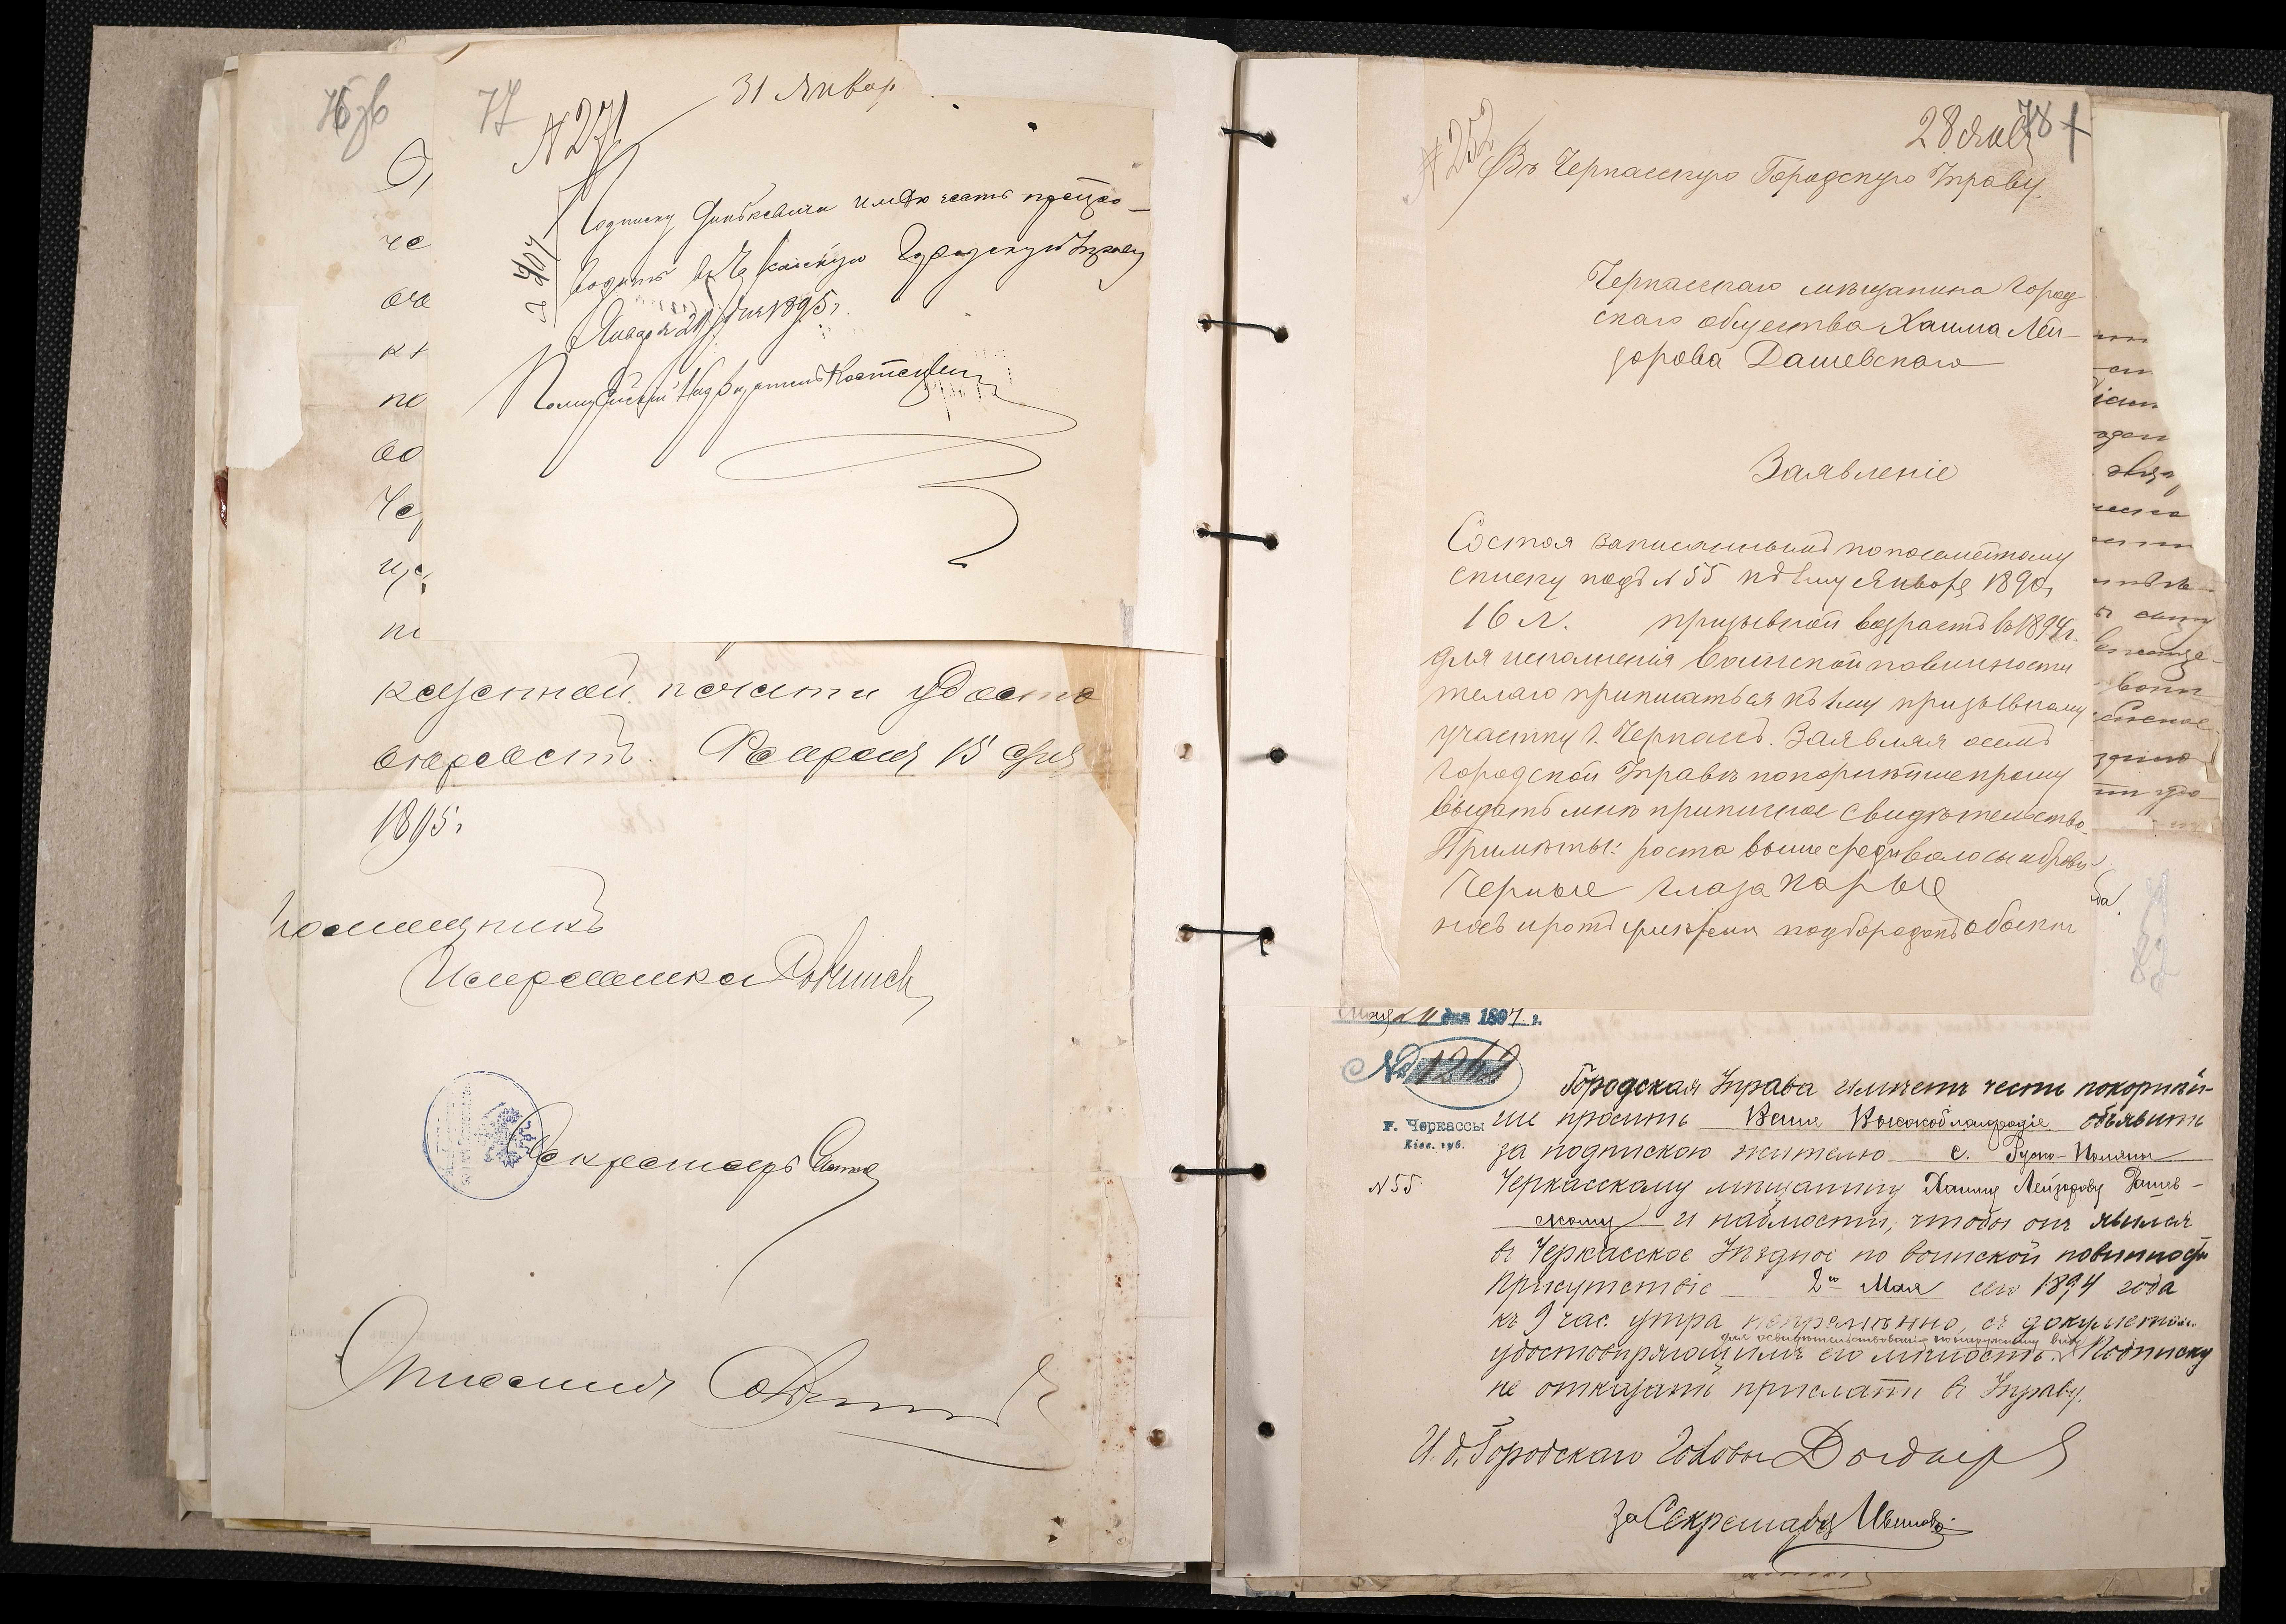 76 об
77
31 Январ
N 271
2404
Подписку имѣю честь препро-
водить въ Черкасскую Городскую Управу
Января 29 дня 1895 г.
Полицейскій Надзиратель
че
оче
по
во
казенной печати удосто
овѣряетъ. Февраля 15 дня
1895 г.
Помощникъ
Исправника
Секретарь
78
28 Янв
N 252
Въ Черкасскую Городскую Управу.
Черкасскаго мѣщанина город
скаго общества Хаима Лей-
зорова Дашевскаго
Заявленіе
Состоя записаннымъ по посемейному
списку подъ N 55 къ 1му Января 1890 г.
16 л. призывной возрастъ въ 1894 г.
для исполненія воинской повинности
желаю приписаться къ 1му призывному
участку г. Черкассъ. Заявляя о семъ
Городской Управѣ покорнѣйше прошу
выдать мнѣ приписное свидѣтельство.
Примѣты: роста выше средн волосы и брови
черные глаза карые
носъ и ротъ умѣрены подбородокъ обыкн
82
дня 1894 г.
№ 1262
г. Черкассы
Кіев. губ.
N 55
Городская Управа имѣетъ честь покорнѣй-
ше просить Ваше Высокоблагородіе объявить
за подпискою жителю с. Руско-Поляны
Черкасскому мѣщанину Хаиму Лейзорову Дашев-
скому и наблюсти, чтобы онъ явился
въ Черкасское Уѣздное по воинской повинности
Присутствіе 2го Мая сего 1894 года
къ 9 час. утра непремѣнно, съ документомъ
для освидѣтельствованія по наружному виду
удостовѣряющимъ его личность. Подписку
не отказать прислать въ Управу.
И. д. Городскаго Головы
за Секретаря